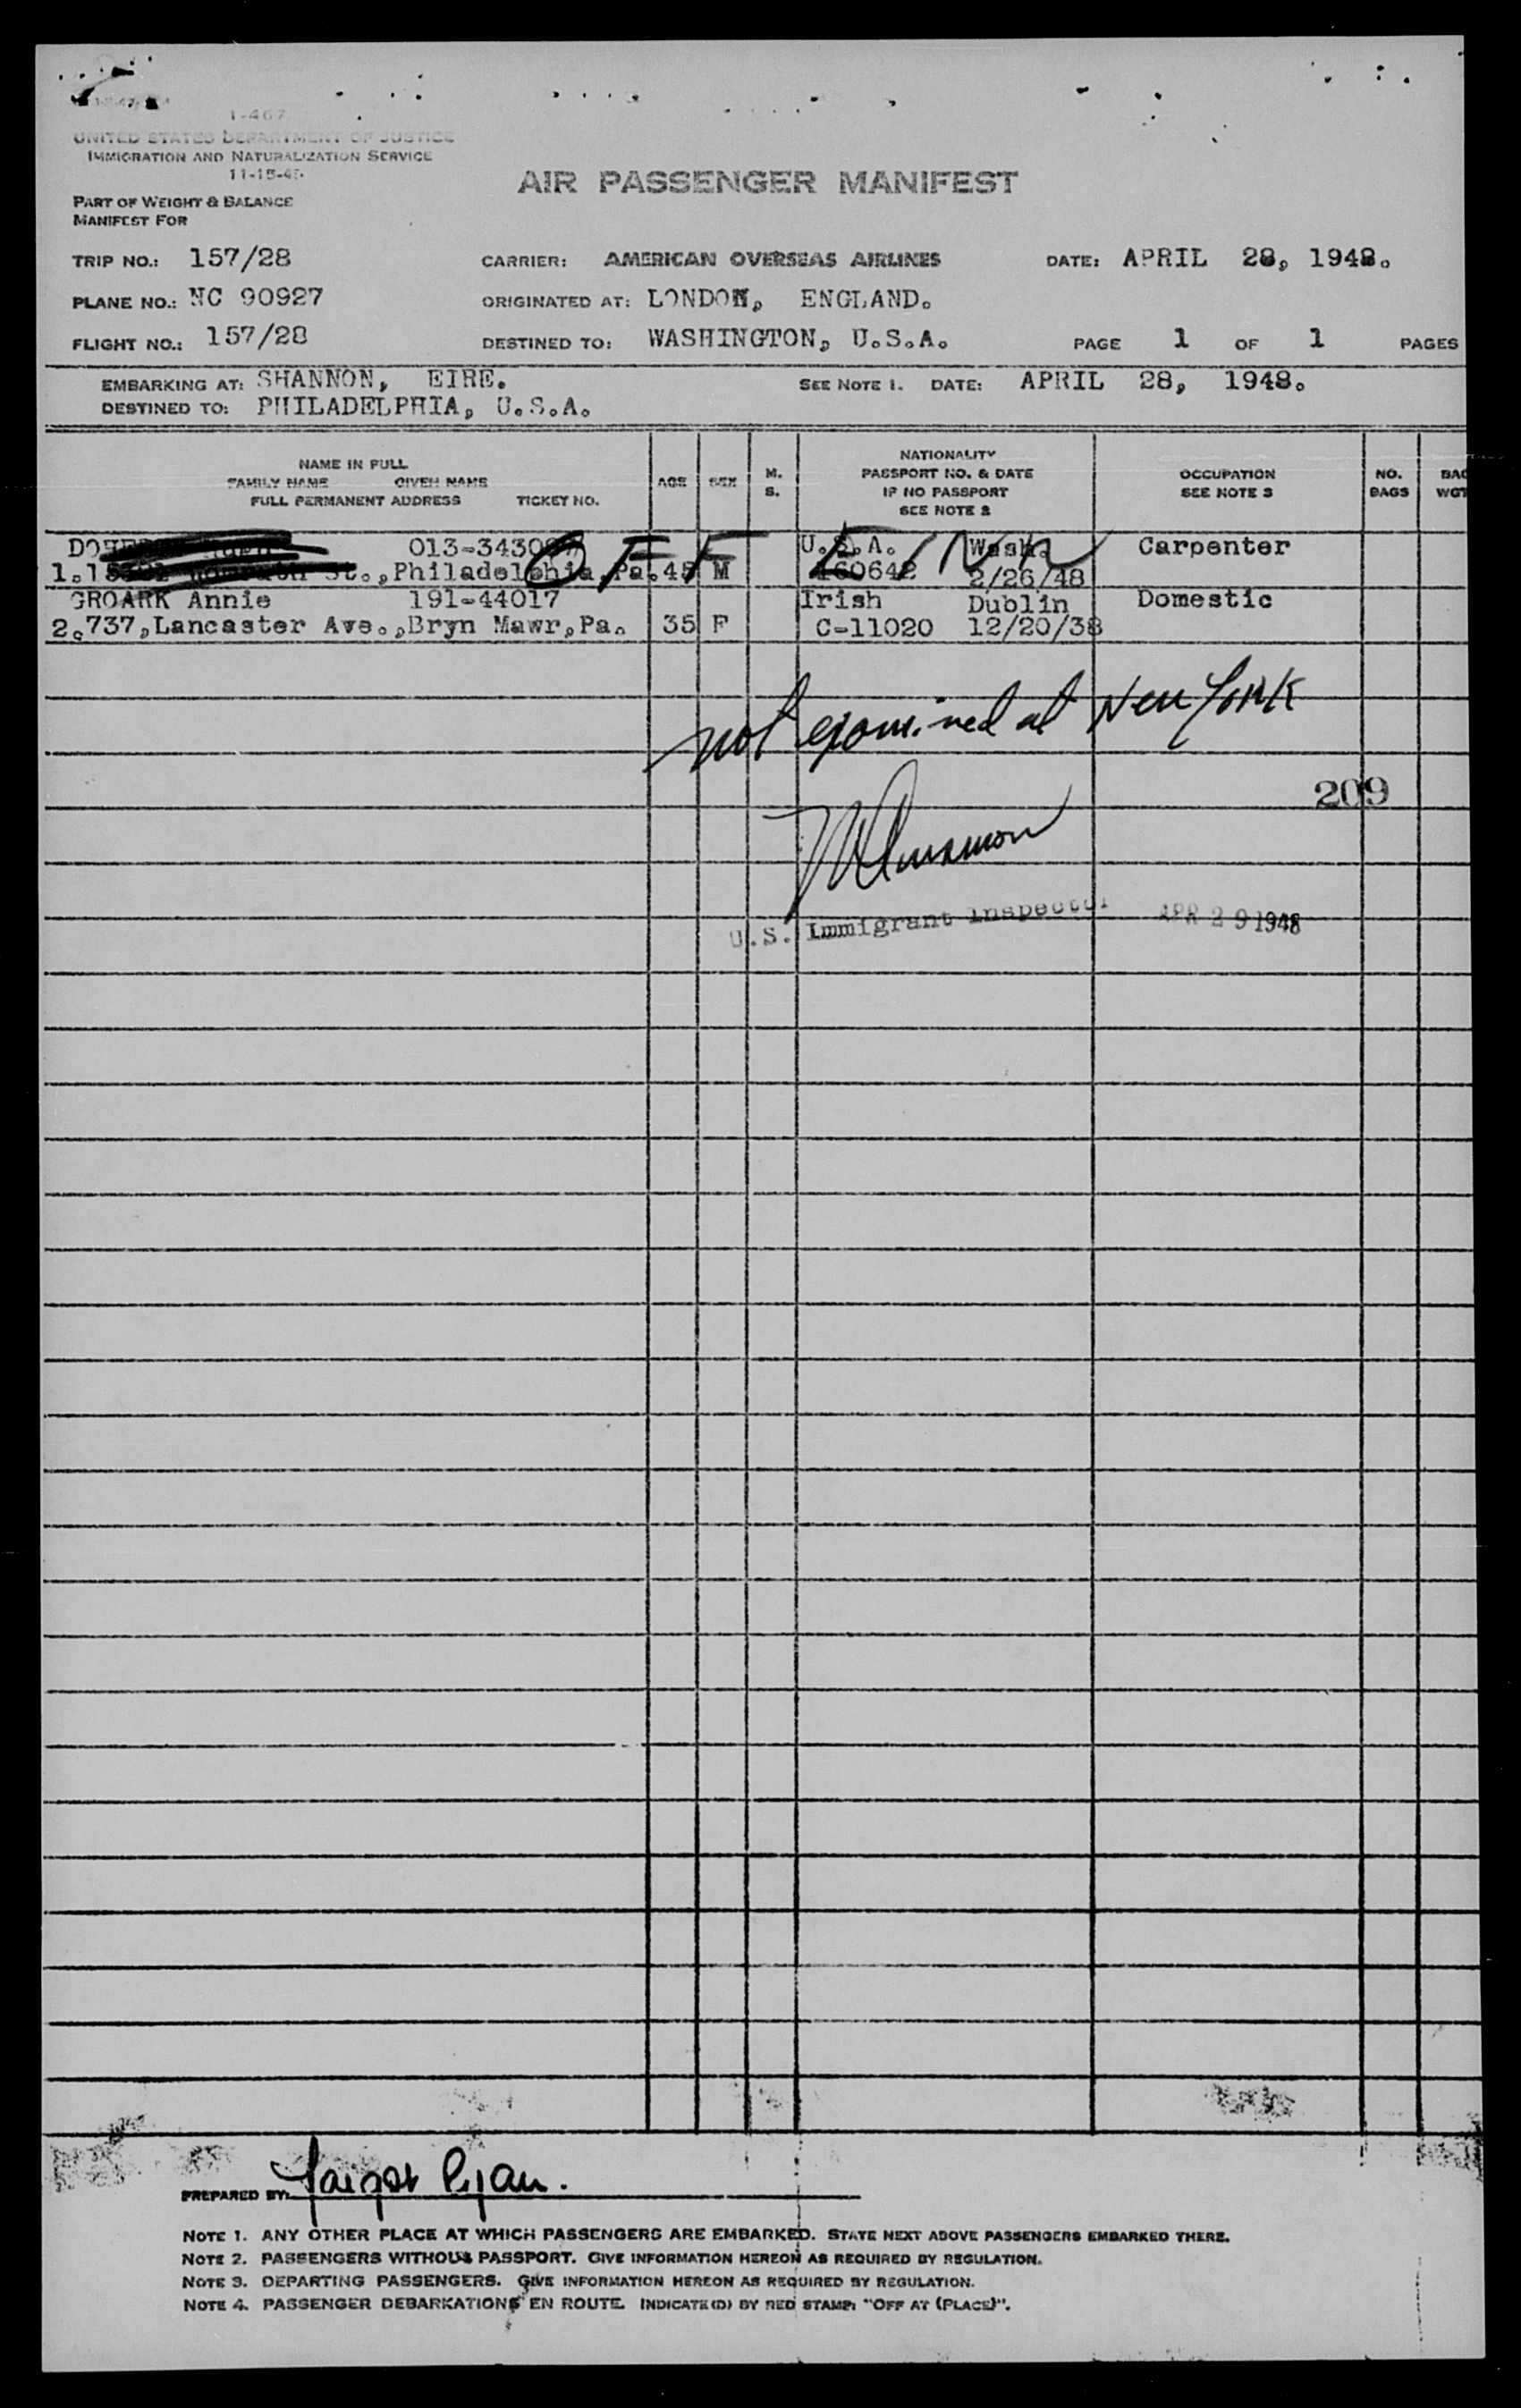 1-467
UNITED STATES DEPARTMENT OF JUSTICE
IMMIGRATION AND NATURALIZATION SERVICE
11-15-45
AIR PASSENGER MANIFEST
PART OF WEIGHT & BALANCE
MANIFEST FOR
TRIP NO.: 157/28 CARRIER: AMERICAN OVERSEAS AIRLINES DATE: APRIL 28, 1948.
PLANE NO.: NC 90927 ORIGINATED AT: LONDON, ENGLAND.
FLIGHT NO.: 157/28 DESTINED TO: WASHINGTON, U.S.A. PAGE 1 OF 1 PAGES
EMBARKING AT: SHANNON, EIRE. SEE NOTE 1. DATE: APRIL 28, 1948.
DESTINED TO: PHILADELPHIA, U.S.A.
NAME IN FULL
FAMILY NAME GIVEN NAME
FULL PERMANENT ADDRESS TICKET NO.
AGE
SEX
M.
S.
NATIONALITY
PASSPORT NO. & DATE
IF NO PASSPORT
SEE NOTE 2
OCCUPATION
SEE NOTE 3
NO.
BAGS
BAG
WGT
013-3430 U.S.A. Wash. Carpenter
1. St.,Philadelphia,Pa. 45 M 160642 2/26/48
OFF
GROARK Annie 191-44017 Irish Dublin Domestic
2.737,Lancaster Ave.,Bryn Mawr,Pa. 35 F C-11020 12/20/38
not examined at New York
209
U.S. Immigrant Inspector APR 29 1948
PREPARED BY: Ryan.
NOTE 1. ANY OTHER PLACE AT WHICH PASSENGERS ARE EMBARKED. STATE NEXT ABOVE PASSENGERS EMBARKED THERE.
NOTE 2. PASSENGERS WITHOUT PASSPORT. GIVE INFORMATION HEREON AS REQUIRED BY REGULATION.
NOTE 3. DEPARTING PASSENGERS. GIVE INFORMATION HEREON AS REQUIRED BY REGULATION.
NOTE 4. PASSENGER DEBARKATIONS EN ROUTE. INDICATE(D) BY RED STAMP: "OFF AT (PLACE)".